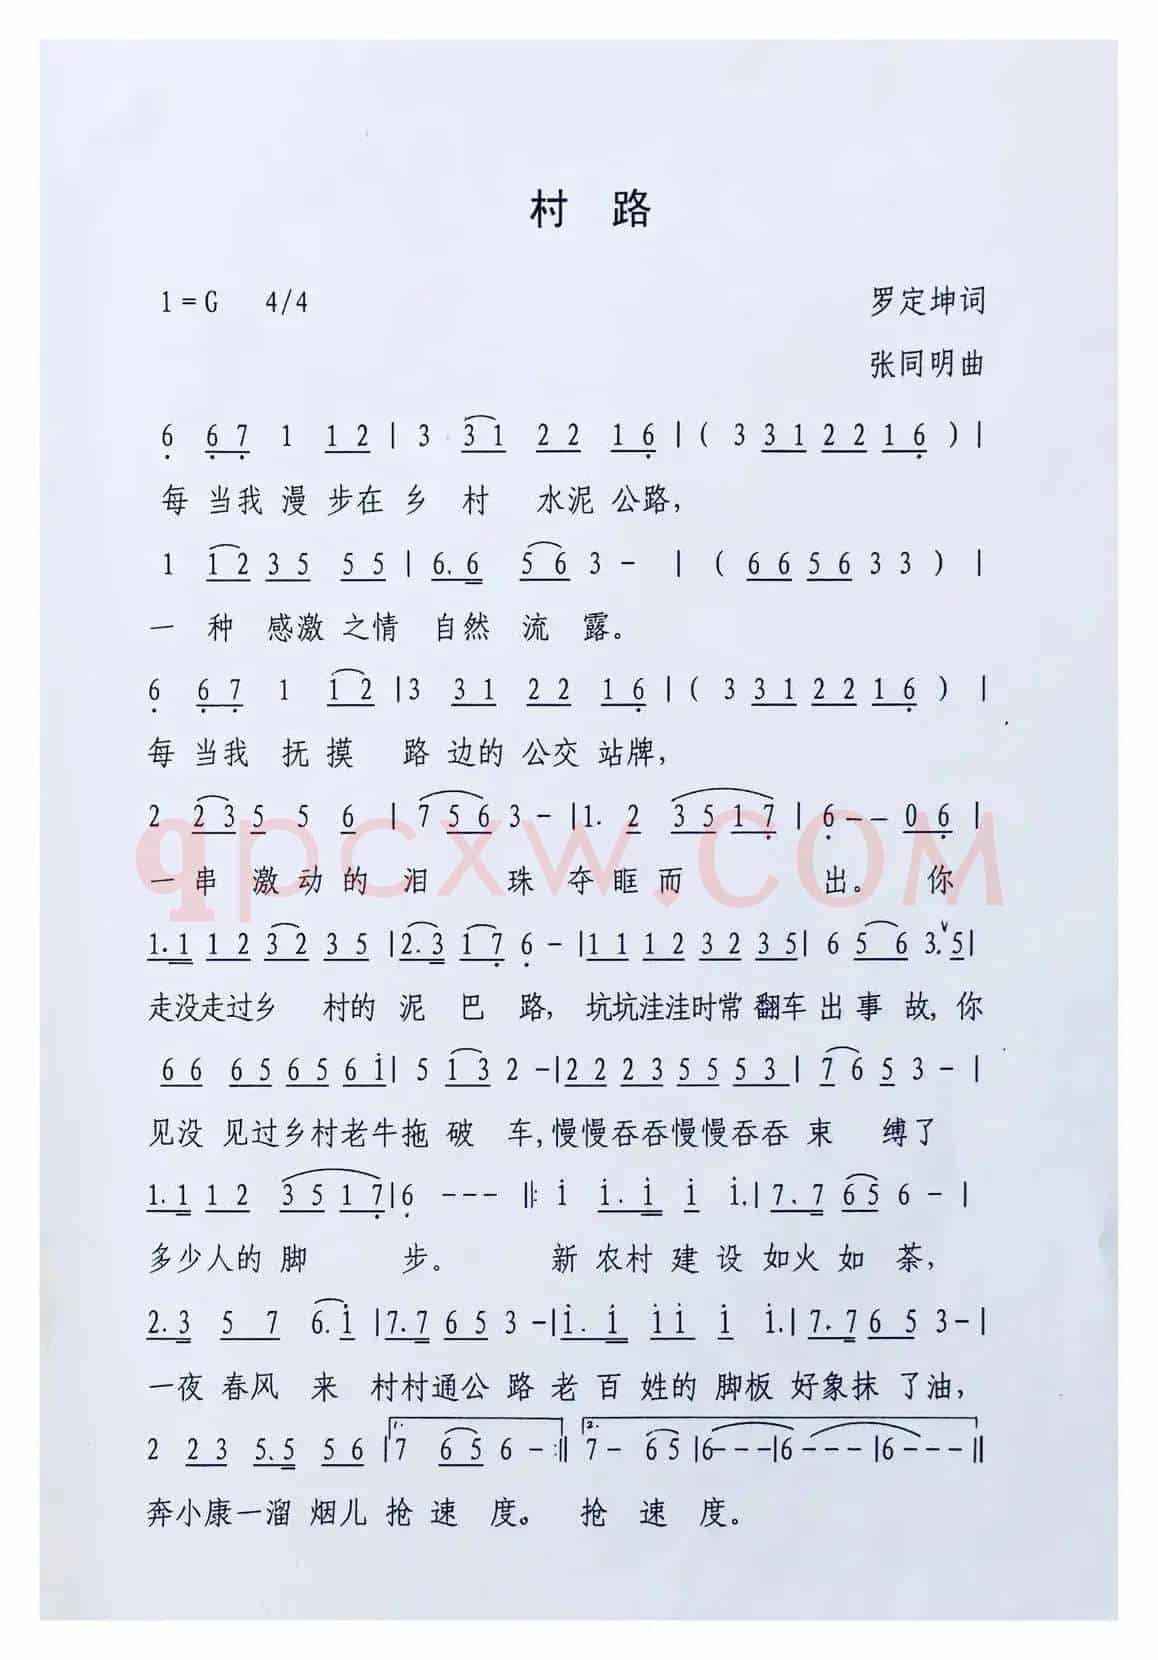 村 路
1=G 4/4 罗定坤词
张同明曲
6 6 7 1 1 2 | 3 3 1 2 2 1 6 | ( 3 3 1 2 2 1 6 ) |
每 当我 漫 步在 乡 村 水泥 公路,
1 1 2 3 5 5 5 | 6. 6 5 6 3 - | ( 6 6 5 6 3 3 ) |
一 种 感激 之情 自然 流 露。
6 6 7 1 1 2 | 3 3 1 2 2 1 6 | ( 3 3 1 2 2 1 6 ) |
每 当我 抚 摸 路 边的 公交 站牌,
2 2 3 5 5 6 | 7 5 6 3 - | 1. 2 3 5 1 7 | 6 - - 0 6 |
一 串 激 动 的 泪 珠 夺 眶 而 出。 你
qpcxw.COM
1. 1 1 2 3 2 3 5 | 2. 3 1 7 6 - | 1 1 1 2 3 2 3 5 | 6 5 6 3. ∨ 5 |
走没走过乡 村的 泥 巴 路, 坑坑洼洼时常 翻车 出 事 故, 你
6 6 6 5 6 5 6 i | 5 1 3 2 - | 2 2 2 3 5 5 5 3 | 7 6 5 3 - |
见没 见过乡村老牛拖 破 车, 慢慢吞吞慢慢吞吞 束 缚了
1. 1 1 2 3 5 1 7 | 6 - - - ‖: i i. i i i. | 7. 7 6 5 6 - |
多少人的 脚 步。 新 农村 建 设 如火 如 荼,
2. 3 5 7 6. i | 7. 7 6 5 3 - | i. i i i i i. | 7. 7 6 5 3 - |
一夜 春风 来 村村通公 路 老 百 姓的 脚板 好象抹 了油,
2 2 3 5. 5 5 6 | 1. 7 6 5 6 - :‖ 2. 7 - 6 5 | 6 - - - | 6 - - - | 6 - - - ‖
奔小康一溜 烟儿 抢 速 度。 抢 速 度。